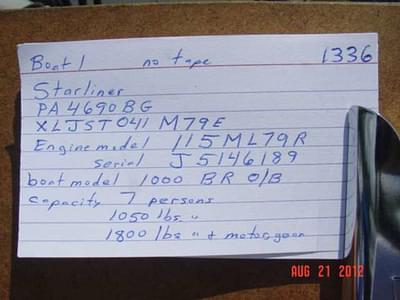 Boat 1 no tape 1336
Starliner
PA 4690 BG
XLJST041 M79E
Engine model 115ML79R
Serial J5146189
boat model 1000 BR O/B
capacity 7 persons
1050 lbs "
1800 lbs " & motor, gear
AUG 21 2012